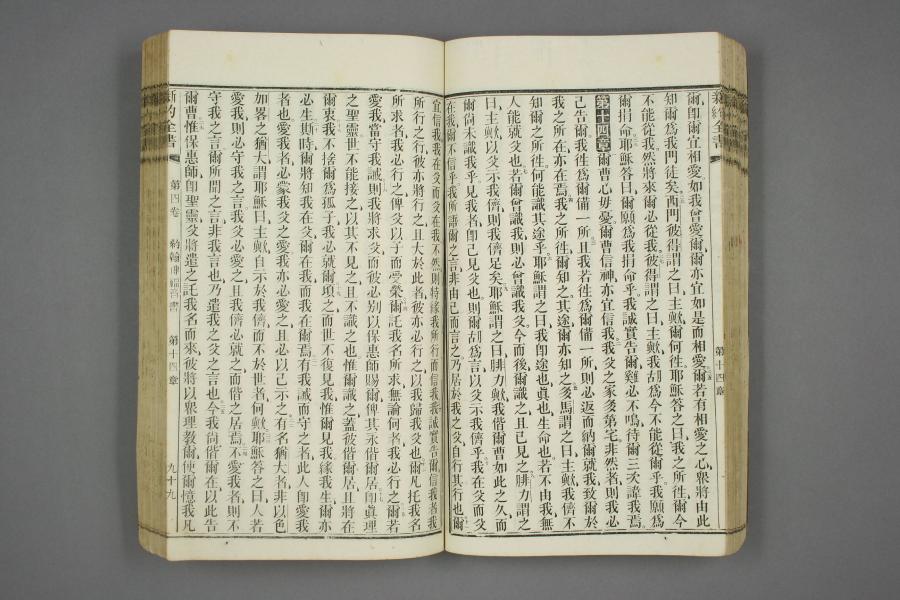 新約全書
第十四章
爾、卽爾宜相愛、如我曾愛爾、爾亦宜如是而相愛、爾若有相愛之心、衆將由此
知爾爲我門徒矣、西門彼得謂之曰、主歟、爾何徃、耶穌答之曰、我之所徃、爾今
不能從我、然將來爾必從我、彼得謂之曰、主歟、我胡爲今不能從爾乎、我願爲
爾捐命、耶穌答曰、爾願爲我捐命乎、我誠實告爾、雞必不鳴、待爾三次諱我焉、
第十四章 爾曹心毋憂、爾曹信神、亦宜信我、我父之家多第宅、非然者、則我必
己告爾、我徃爲爾備一所、且我若徃爲爾備一所、則必返而納爾就我、致爾於
我之所在、亦在焉、我之所徃、爾知之、其途爾亦知之、多馬謂之曰、主歟、我儕不
知爾之所徃、何能識其途乎、耶穌謂之曰、我卽途也、眞也、生命也、若不由我、無
人能就父也、若爾曾識我、則必曾識我父、今而後、爾識之、且已見之、腓力謂之
曰、主歟、以父示我儕、則我儕足矣、耶穌謂之曰、腓力歟、我偕爾曹如此之久、而
爾尙未識我乎、見我者、卽己見父也、則爾胡爲言以父示我儕乎、我在父而父
在我、爾不信乎、我所語爾之言、非由己而言之、乃居於我之父、自行其行也、爾
宜信我、我在父而父在我、不然則特緣我所行而信我、我誠實告爾、信我者、我
所行之行、彼亦將行之、且大於此者、彼亦必行之、以我歸我父也、爾凡托我名
所求者、我必行之、俾父以子而受榮、爾託我名所求、無論何者、我必行之、爾若
愛我、當守我誡、則我將求父、而彼必別以保惠師賜爾、俾其永偕爾居、卽眞理
之聖靈、世不能接之、以其不見之、且不識之也、惟爾識之、蓋彼偕爾居、且將在
爾衷、我不捨爾爲孤子、我必就爾、頃之而世不復見我、惟爾見我、緣我生、爾亦
必生、斯時爾將知我在父、爾在我、而我在爾焉、有我誡而守之者、此人卽愛我
者也、愛我者、必蒙我父之愛、我亦必愛之、且必以己示之、有名猶大者、非以色
如畧之猶大、謂耶穌曰、主歟、自示於我儕、而不於世者何歟、耶穌答之曰、人若
愛我、則必守我之言、我父必愛之、且我儕必就之而偕之居焉、不愛我者、則不
守我之言、爾所聞之言、非我言也、乃遣我之父之言也、今我尙偕爾在、以此告
爾曹、惟保惠師、卽聖靈、父將遣之、託我名而來、彼將以衆理敎爾、使爾憶我凡
新約全書 第四卷 約翰傳福音書 第十四章 九十九